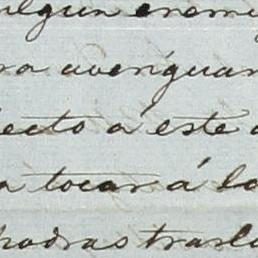 algun enemig
ra averiguar
fecto á este
a tocar á la
podras trasla